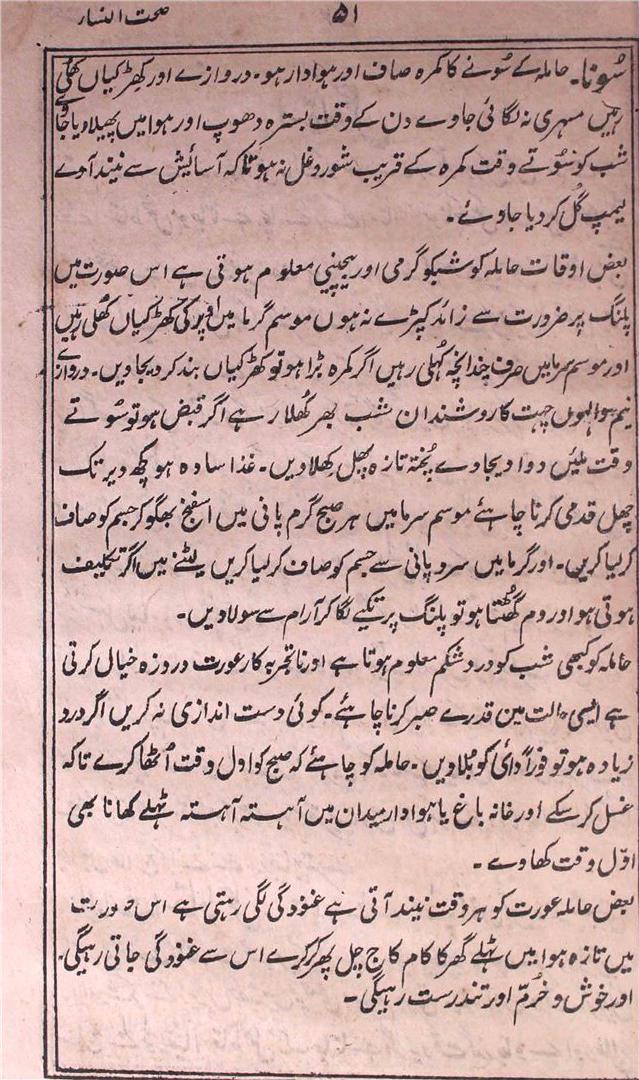 ۵۱
صحت النسار
سُونا۔ حاملہ کے سُونے کا کمرہ صاف اور ہوادار ہو۔ دروازے اور کھڑکیاں کھُلی
رہیں مسہری نہ لگائی جاوے دن کے وقت بسترہ دھوپ اور ہوا میں پھیلا دیا جاوے
شب کو سُوتے وقت کمرہ کے قریب شور و غل نہ ہو تاکہ آسائیش سے نیند آوے
لیمپ گُل کر دیا جاوے۔
بعض اوقات حاملہ کو شبکو گرمی اور بیچینی معلوم ہوتی ہے اس صورت میں
پلنگ پر ضرورت سے زائد کپڑے نہ ہوں موسم گرما میں اوپر کی کھڑکیاں کھُلی رہیں
اور موسم سرما میں صرف چندانچہ کہُلی رہیں اگر کمرہ بڑا ہو تو کھڑکیاں بند کر دیجاویں۔ دروازے
نیم وا ہوں چہت کا روشندان شب بھر کھُلا رہے اگر قبض ہو تو سُوتے
وقت ملیّن دوا دیجاوے پُختہ تازہ پھل کھلاویں۔ غذا سادہ ہو کچھ دیر تک
چہل قدمی کرنا چاہئے موسم سرما میں ہر صبح گرم پانی میں اسفنج بھگو کر جسم کو صاف
کر لیا کریں۔ اور گرما میں سرد پانی سے جسم کو صاف کر لیا کریں لیٹنے میں اگر تکلیف
ہوتی ہو اور دم گھُٹتا ہو تو پلنگ پر تکیے لگا کر آرام سے سولاویں۔
حاملہ کو کبھی شب کو درد شکم معلوم ہوتا ہے اور ناتجربہ کار عورت دردزہ خیال کرتی
ہے ایسی حالت مین قدرے صبر کرنا چاہئے۔ کوئی دست اندازی نہ کریں اگر درد
زیادہ ہو تو فوراً دائی کو بُلاویں۔ حاملہ کو چاہئے کہ صبح کو اول وقت اُٹھا کرے تاکہ
غسل کر سکے اور خانہ باغ یا ہوادار میدان میں آہستہ آہستہ ٹہلے کھانا بھی
اوّل وقت کھاوے۔
بعض حاملہ عورت کو ہر وقت نیند آتی ہے غنودگی لگی رہتی ہے اس صورت
میں تازہ ہوا میں ٹہلے گھر کا کام کاج چل پھر کر کرے اس سے غنودگی جاتی رہیگی۔
اور خوش و خرُم اور تندرست رہیگی۔